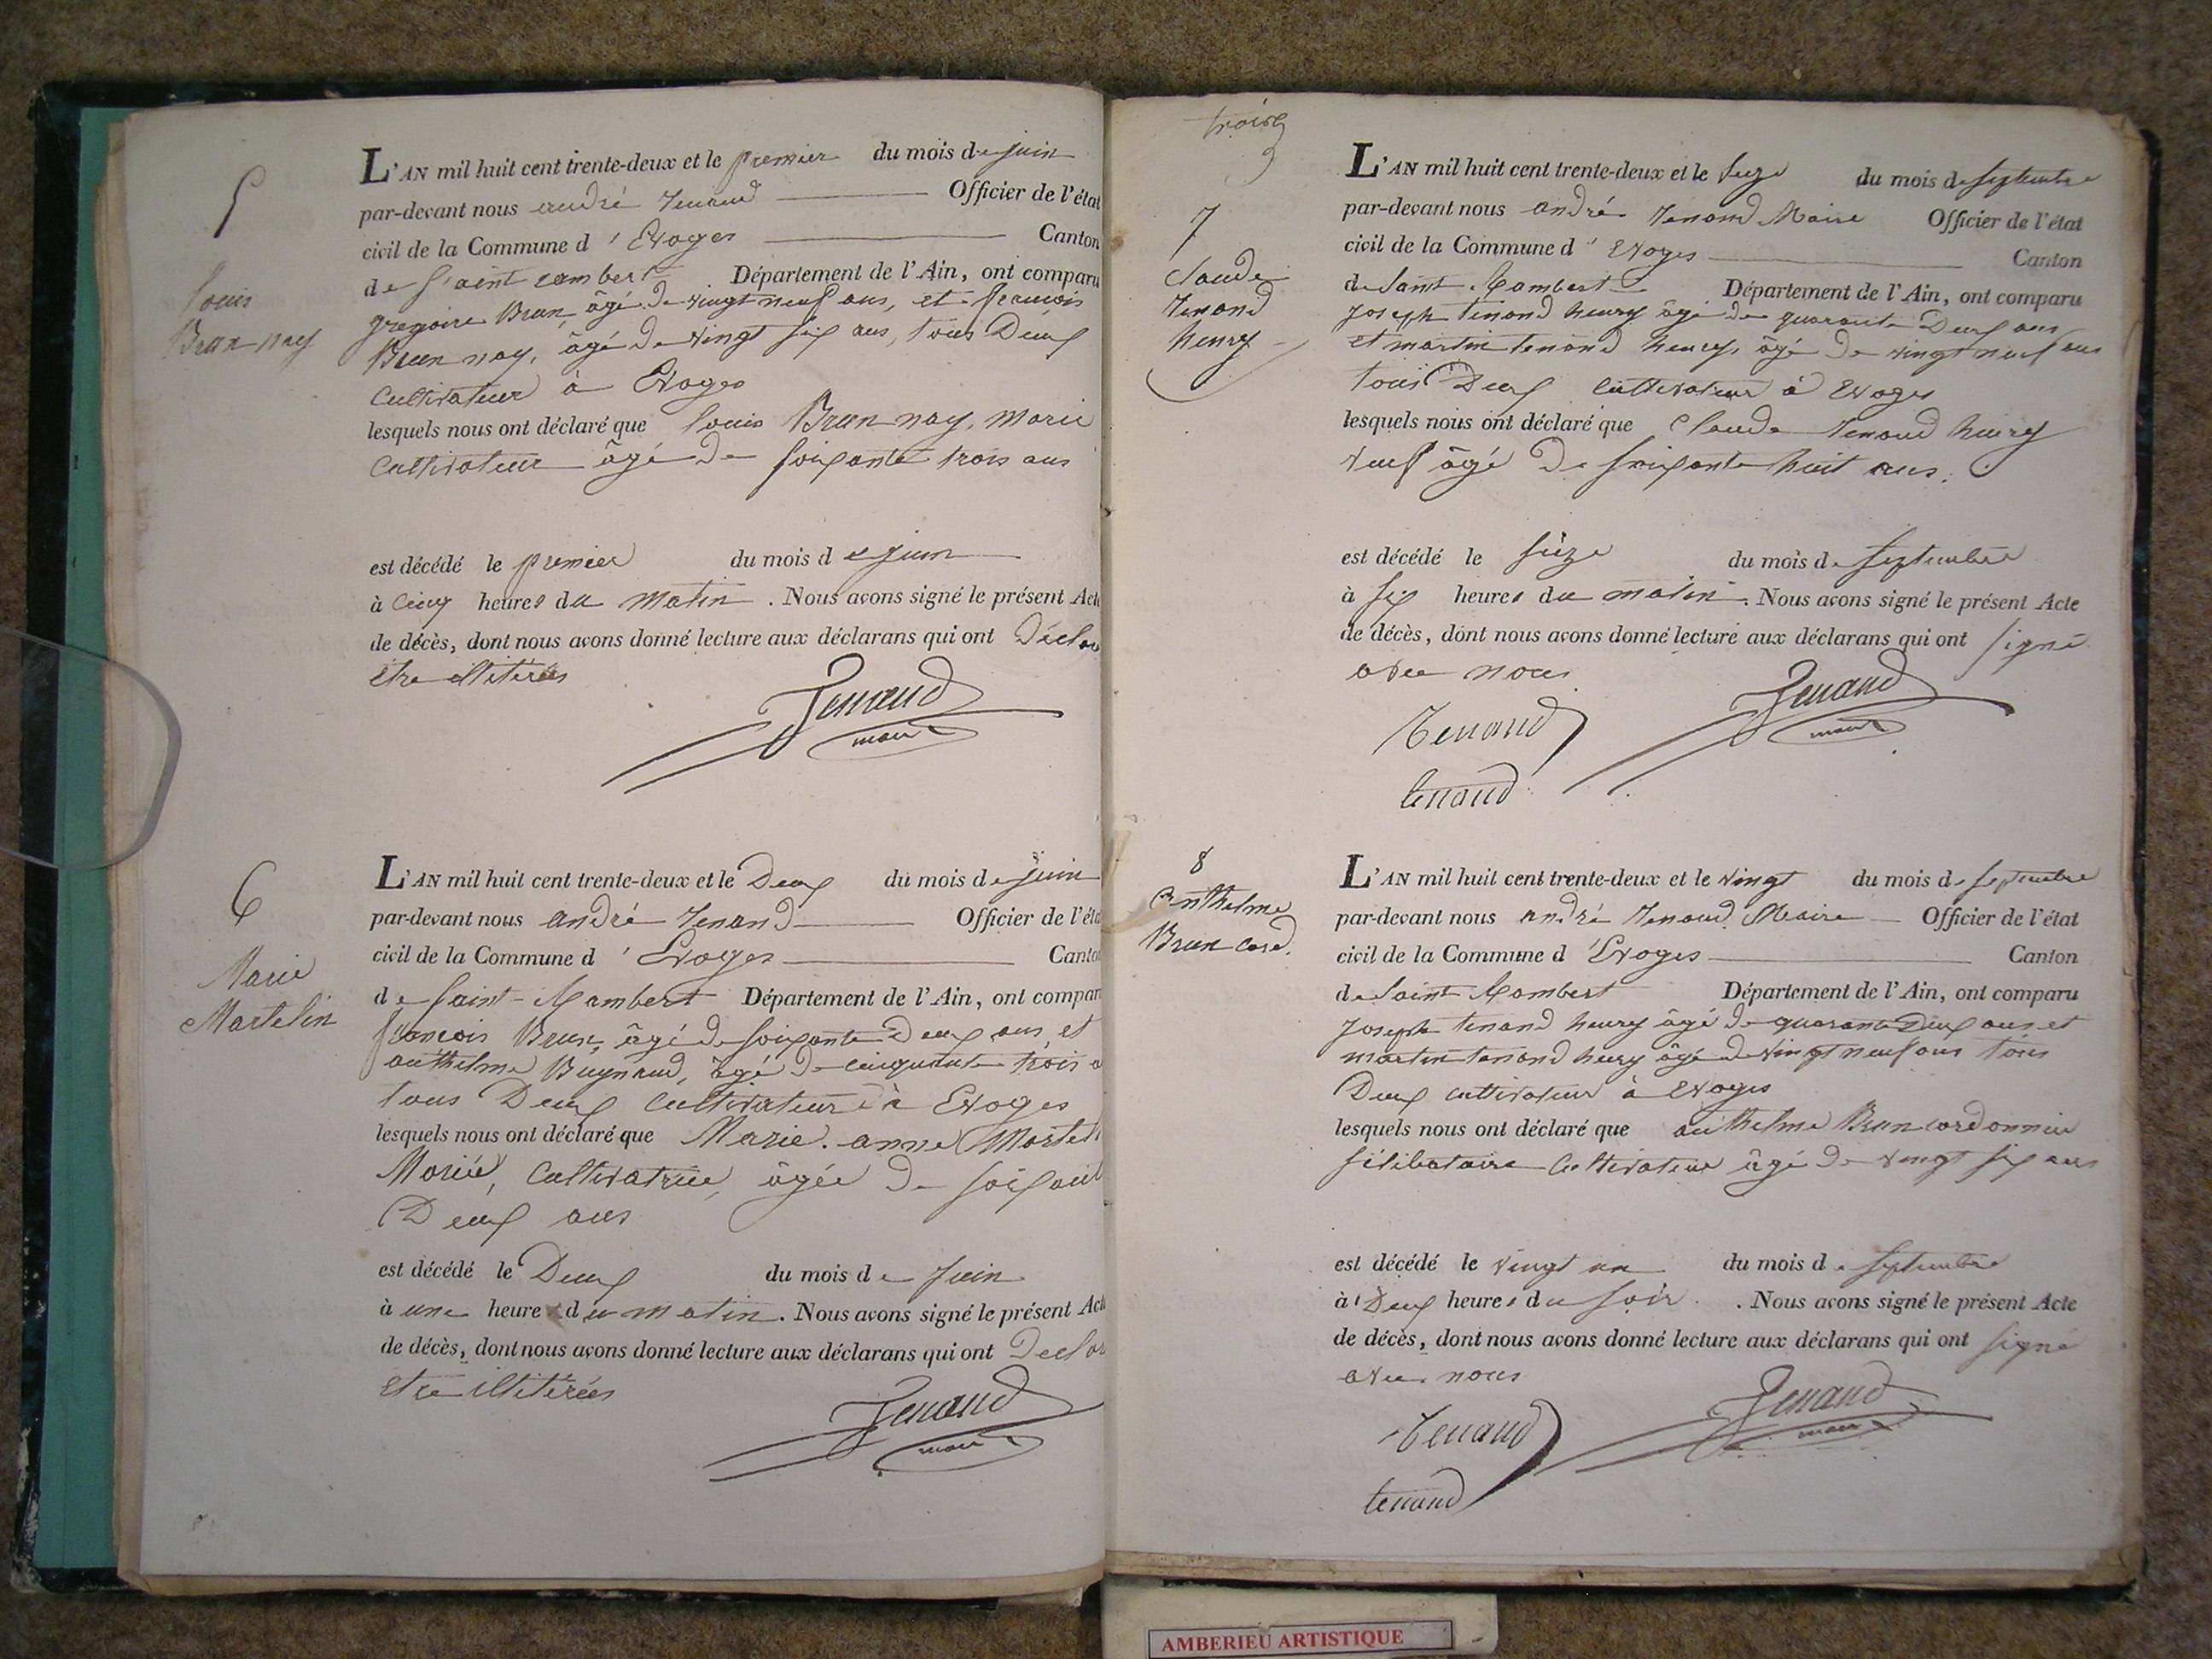 5
Louis
Brun nay
L'AN mil huit cent trente-deux et le premier du mois de juin
par-devant nous andré Tenand Officier de l'état
civil de la Commune d'Evoges Canton
de Saint rambert Département de l'Ain, ont comparu
gregoire Brun, âgé de vingt neuf ans, et francois
Brun nay, âgé de vingt six ans, tous Deux
Cultivateur à Evoges
lesquels nous ont déclaré que Louis Brun nay, Marié
Cultivateur âgé de soixante trois ans
est décédé le premier du mois de juin
à cinq heures du matin. Nous avons signé le présent Acte
de décès, dont nous avons donné lecture aux déclarans qui ont Déclar
être illitérés
Tenand
maire
6
Marie
Martelin
L'AN mil huit cent trente-deux et le Deux du mois de juin
par-devant nous andré Tenand Officier de l'éta
civil de la Commune d'Evoges Canto
de Saint-Rambert Département de l'Ain, ont compar
francois Brun, âgé de soixante Deux ans, et
anthelme Buynand, âgé de cinquante trois a
tous Deux Cultivateur à Evoges
lesquels nous ont déclaré que Marie anne Martel
Mariée, Cultivatrice, âgée de soixant
Deux ans
est décédé le Deux du mois de Juin
à une heure du matin. Nous avons signé le présent Acte
de décès, dont nous avons donné lecture aux déclarans qui ont Declar
etre illitérées
Tenand
maire
trois
7
Claude
Tenand
henry
L'AN mil huit cent trente-deux et le seize du mois de septembre
par-devant nous andré Tenand Maire Officier de l'état
civil de la Commune d'Evoges Canton
de Saint Rambert Département de l'Ain, ont comparu
Joseph tenand henry âgé de quarante Deux ans
et martin tenand henry, âgé de vingt neuf ans
tous Deux Cultivateur à Evoges
lesquels nous ont déclaré que Claude Tenand henry
veuf âgé De soixante huit ans.
est décédé le seize du mois de septembre
à six heures du matin. Nous avons signé le présent Acte
de décès, dont nous avons donné lecture aux déclarans qui ont signé
avec nous
Tenand
Tenand
maire
tenand
8
Anthelme
Brun cord.
L'AN mil huit cent trente-deux et le vingt du mois de septembre
par-devant nous andré Tenand Maire Officier de l'état
civil de la Commune d'Evoges Canton
de Saint Rambert Département de l'Ain, ont comparu
Joseph tenand henry âgé de quarante Deux ans et
martin tenand henry âgé de vingt neuf ans tous
Deux cultivateur à Evoges
lesquels nous ont déclaré que anthelme Brun cordonnier
sélibataire Cultivateur âgé de vingt six ans
est décédé le vingt un du mois de septembre
à Deux heures du soir. Nous avons signé le présent Acte
de décès, dont nous avons donné lecture aux déclarans qui ont signé
avec nous
Tenand
Tenand
maire
tenand
AMBERIEU ARTISTIQUE